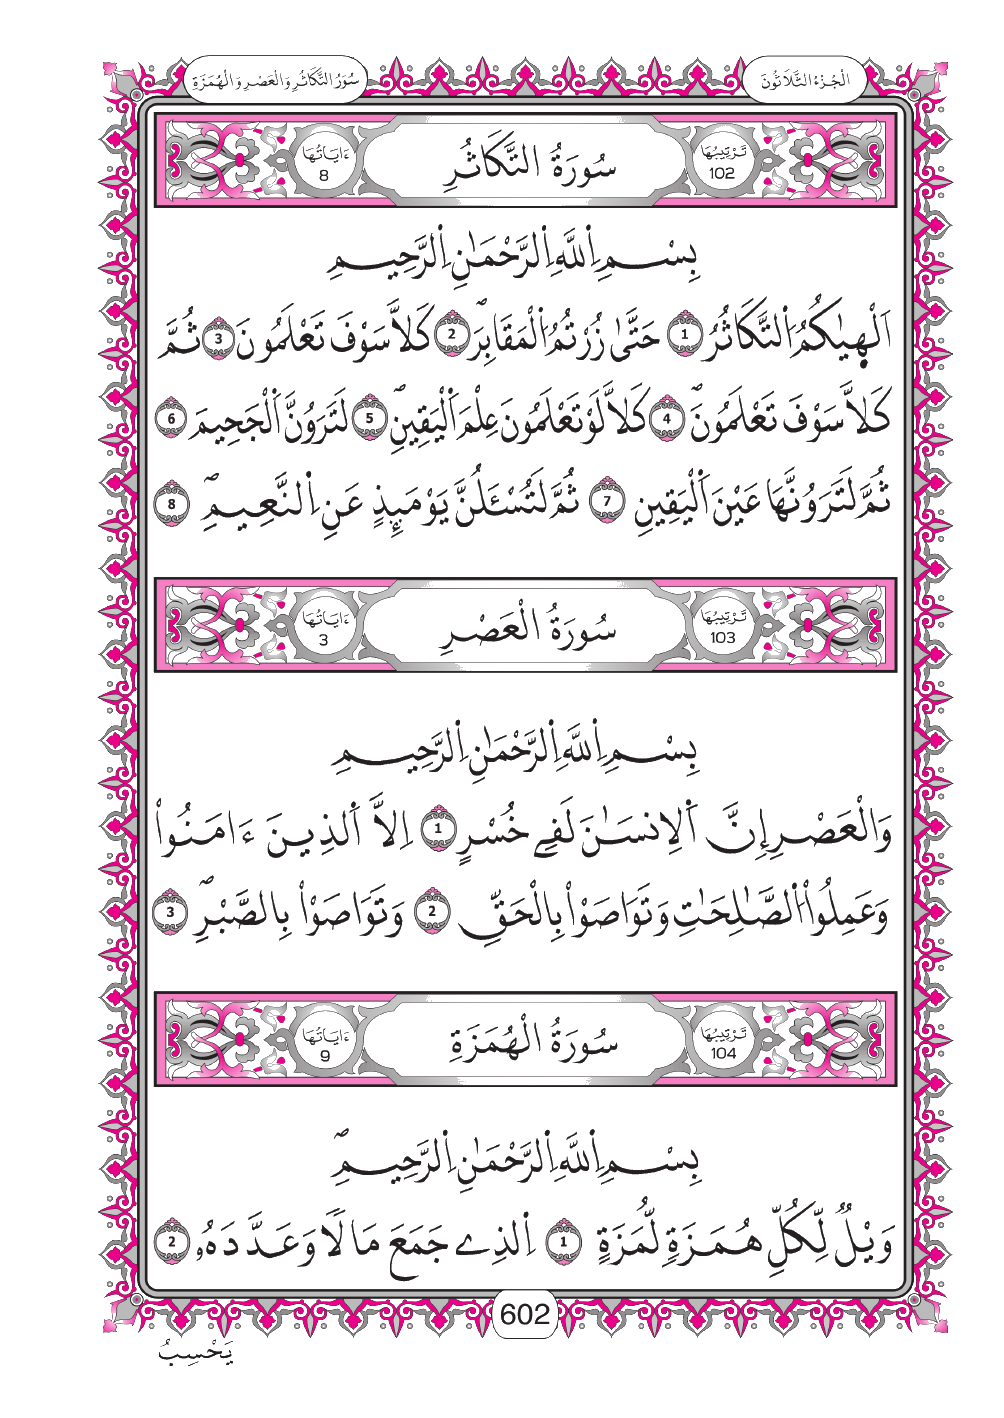 الْجُزْءُ الثَّلَاثُونَ
سُوَرُ التَّكَاثُرِ وَالْعَصْرِ وَالْهُمَزَةِ
تَرْتِيبُهَا 102
سُورَةُ التَّكَاثُرِ
ءَايَاتُهَا 8
بِسْمِ اِ۬للَّهِ اِ۬لرَّحْمَٰنِ اِ۬لرَّحِيمِ
اَلْهۭيٰكُمُ اُ۬لتَّكَاثُرُ 1 حَتَّىٰ زُرْتُمُ اُ۬لْمَقَابِرَۖ 2 كَلَّا سَوْفَ تَعْلَمُونَ 3 ثُمَّ
كَلَّا سَوْفَ تَعْلَمُونَۖ 4 كَلَّا لَوْ تَعْلَمُونَ عِلْمَ اَ۬لْيَقِينِۖ 5 لَتَرَوُنَّ اَ۬لْجَحِيمَ 6
ثُمَّ لَتَرَوُنَّهَا عَيْنَ اَ۬لْيَقِينِ 7 ثُمَّ لَتُسْـَٔلُنَّ يَوْمَئِذٍ عَنِ اِ۬لنَّعِيمِۖ 8
تَرْتِيبُهَا 103
سُورَةُ الْعَصْرِ
ءَايَاتُهَا 3
بِسْمِ اِ۬للَّهِ اِ۬لرَّحْمَٰنِ اِ۬لرَّحِيمِ
وَالْعَصْرِ إِنَّ اَ۬لِانسَٰنَ لَفِے خُسْرٍ 1 اِلَّا اَ۬لذِينَ ءَامَنُواْ
وَعَمِلُواْ اُ۬لصَّٰلِحَٰتِ وَتَوَاصَوْاْ بِالْحَقِّ 2 وَتَوَاصَوْاْ بِالصَّبْرِۖ 3
تَرْتِيبُهَا 104
سُورَةُ الْهُمَزَةِ
ءَايَاتُهَا 9
بِسْمِ اِ۬للَّهِ اِ۬لرَّحْمَٰنِ اِ۬لرَّحِيمِۖ
وَيْلٌ لِّكُلِّ هُمَزَةٍ لُّمَزَةٍ 1 اِ۬لذِے جَمَعَ مَالًا وَعَدَّدَهُۥ 2
602
يَحْسِبُ